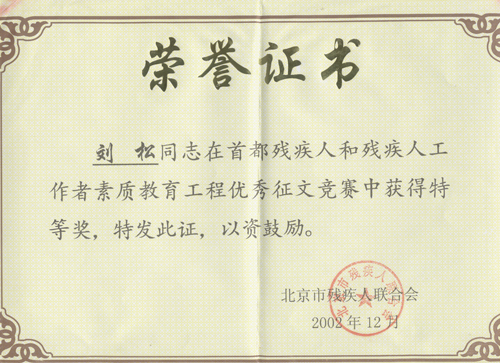 荣誉证书
刘 松同志在首都残疾人和残疾人工
作者素质教育工程优秀征文竞赛中获得特
等奖，特发此证，以资鼓励。
北京市残疾人联合会
2002 年 12 月